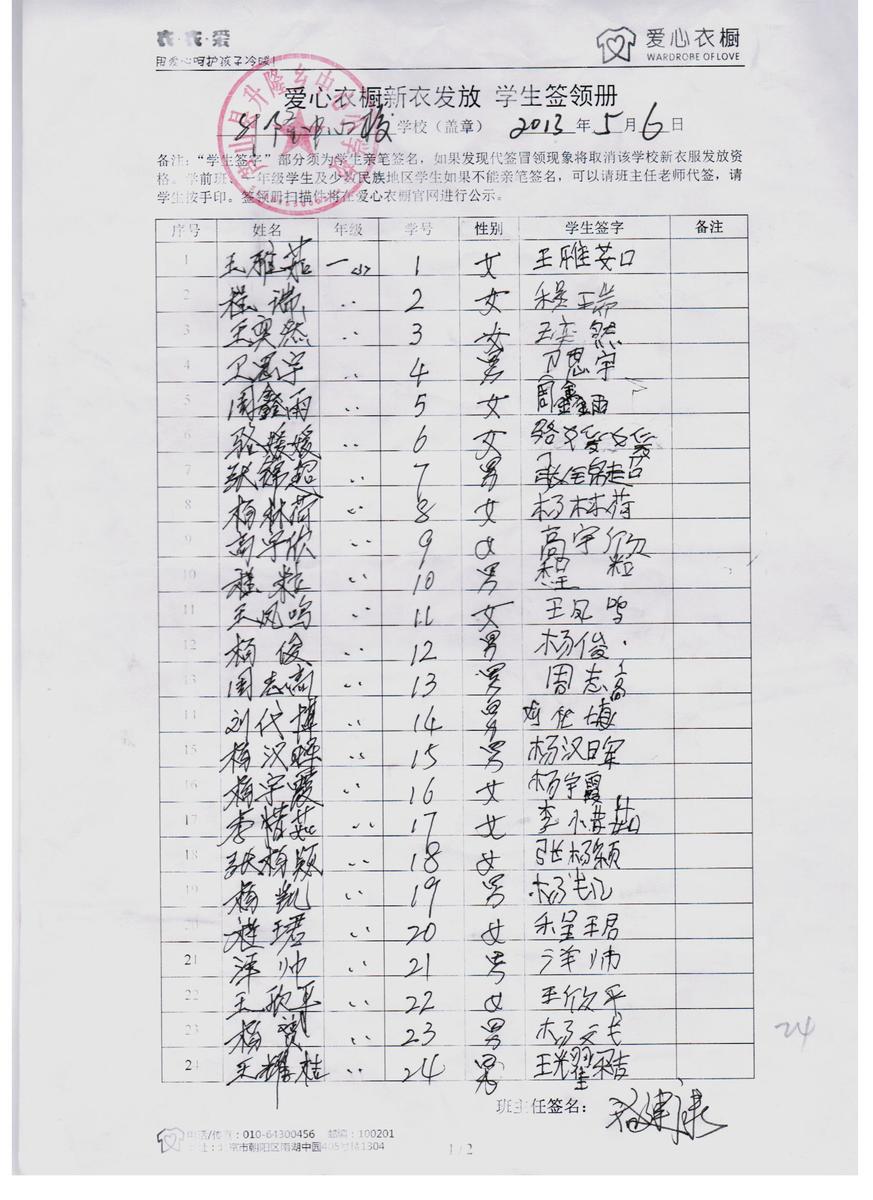 衣·衣·爱
用爱心呵护孩子冷暖!
爱心衣橱
WARDROBE OF LOVE
爱心衣橱新衣发放 学生签领册
升隆中心校 学校（盖章） 2013 年 5 月 6 日
备注：“学生签字”部分须为学生亲笔签名，如果发现代签冒领现象将取消该学校新衣服发放资
格。学前班、一年级学生及少数民族地区学生如果不能亲笔签名，可以请班主任老师代签，请
学生按手印。签领册扫描件将在爱心衣橱官网进行公示。
序号 姓名 年级 学号 性别 学生签字 备注
1 王雅茹 一 1 女 王雅茹
2 程瑞 〃 2 女 程瑞
3 王奕然 〃 3 女 王奕然
4 卫思宇 〃 4 男 卫思宇
5 周鑫雨 〃 5 女 周鑫雨
6 骆媛媛 〃 6 女 骆媛媛
7 张锦超 〃 7 男 张锦超
8 杨林荷 〃 8 女 杨林荷
9 高宇欣 〃 9 女 高宇欣
10 程粒 〃 10 男 程粒
11 王凤鸣 〃 11 女 王凤鸣
12 杨俊 〃 12 男 杨俊
13 周志高 〃 13 男 周志高
14 刘代 〃 14 男
15 杨汉晖 〃 15 男 杨汉晖
16 杨宇霞 〃 16 女 杨宇霞
17 李惜茹 〃 17 女 李惜茹
18 张杨颖 〃 18 女 张杨颖
19 杨凯 〃 19 男 杨凯
20 程珺 〃 20 女 程珺
21 泽帅 〃 21 男 帅
22 王欣平 〃 22 女 王欣平
23 杨 〃 23 男 杨
24 王耀桔 〃 24 男 王耀桔
24
班主任签名： 康
电话/传真：010-64300456 邮编：100201
地址：北京市朝阳区南湖中园405号楼1304
1 / 2